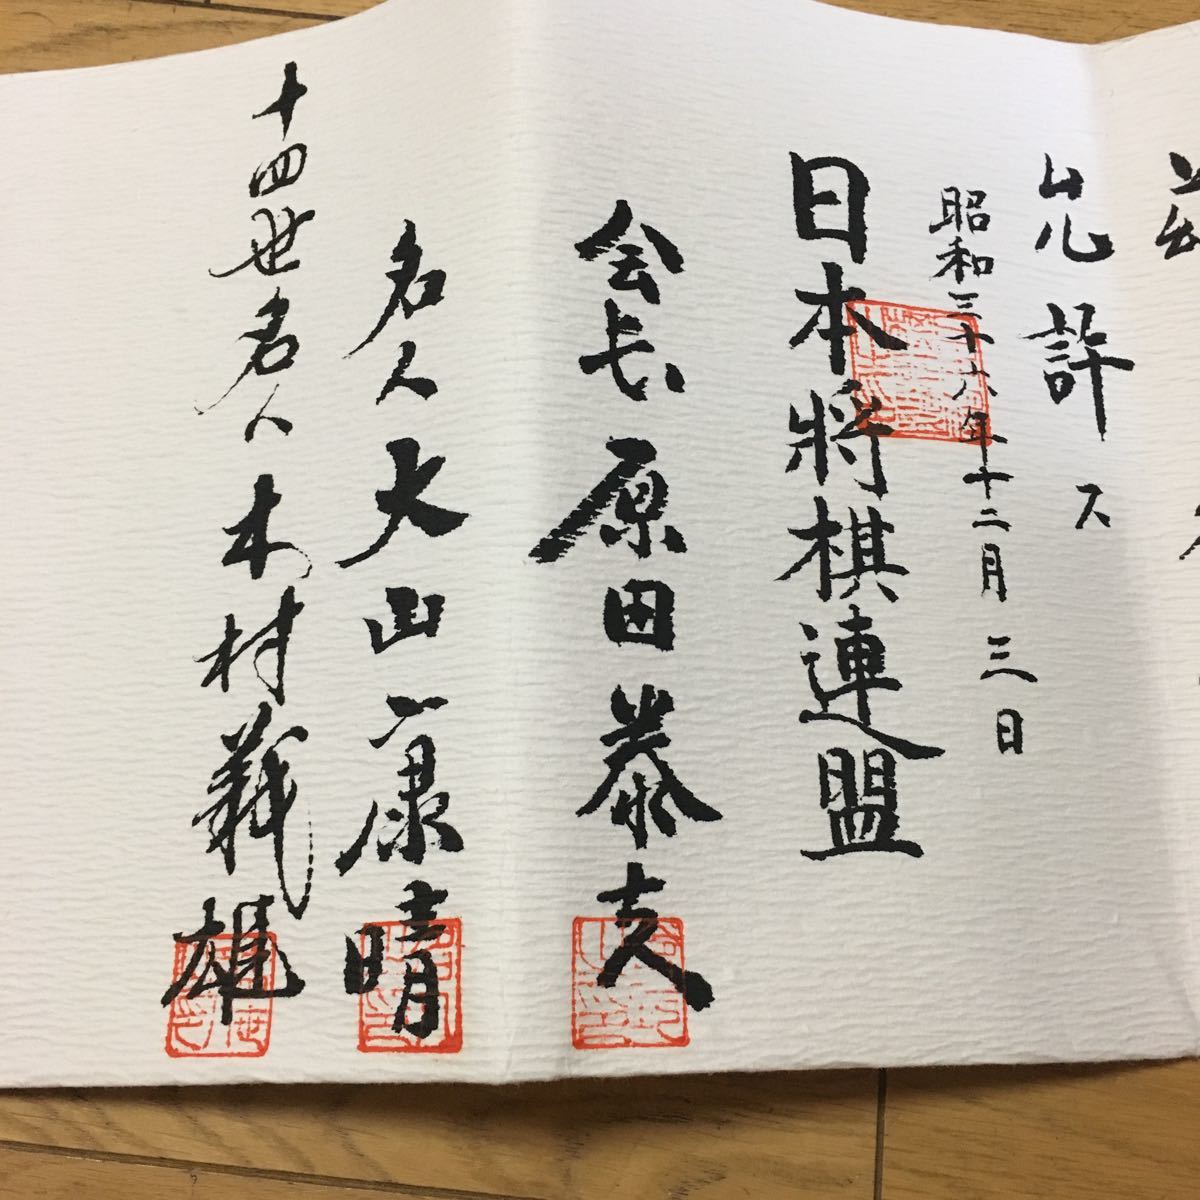 允許ス
昭和三十六年十二月三日
日本将棋連盟
会長 原田泰夫
名人 大山康晴
十四世名人 木村義雄